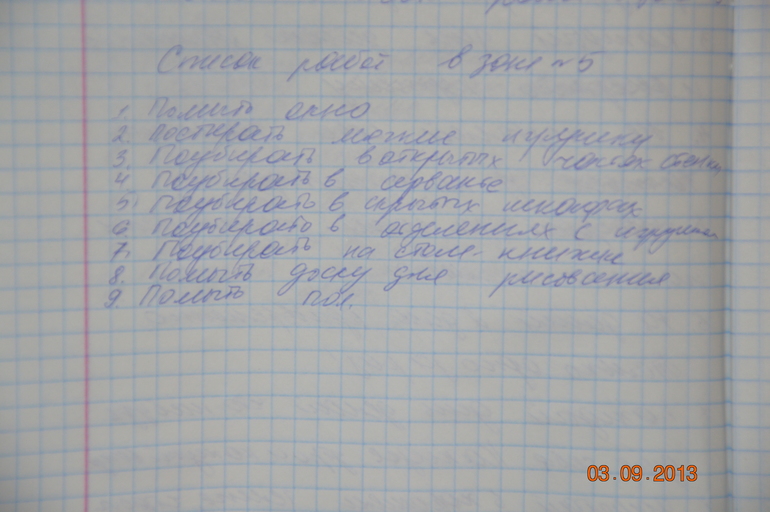 Список работ в зоне №5
1. Помыть окно
2. Постирать мягкие игрушки
3. Поубирать в открытых частях стенки
4. Поубирать в серванте
5. Поубирать в скрытых шкафах
6. Поубирать в отделениях с игрушками
7. Поубирать на столе-книжке
8. Помыть доску для рисования
9. Помыть пол.
03.09.2013